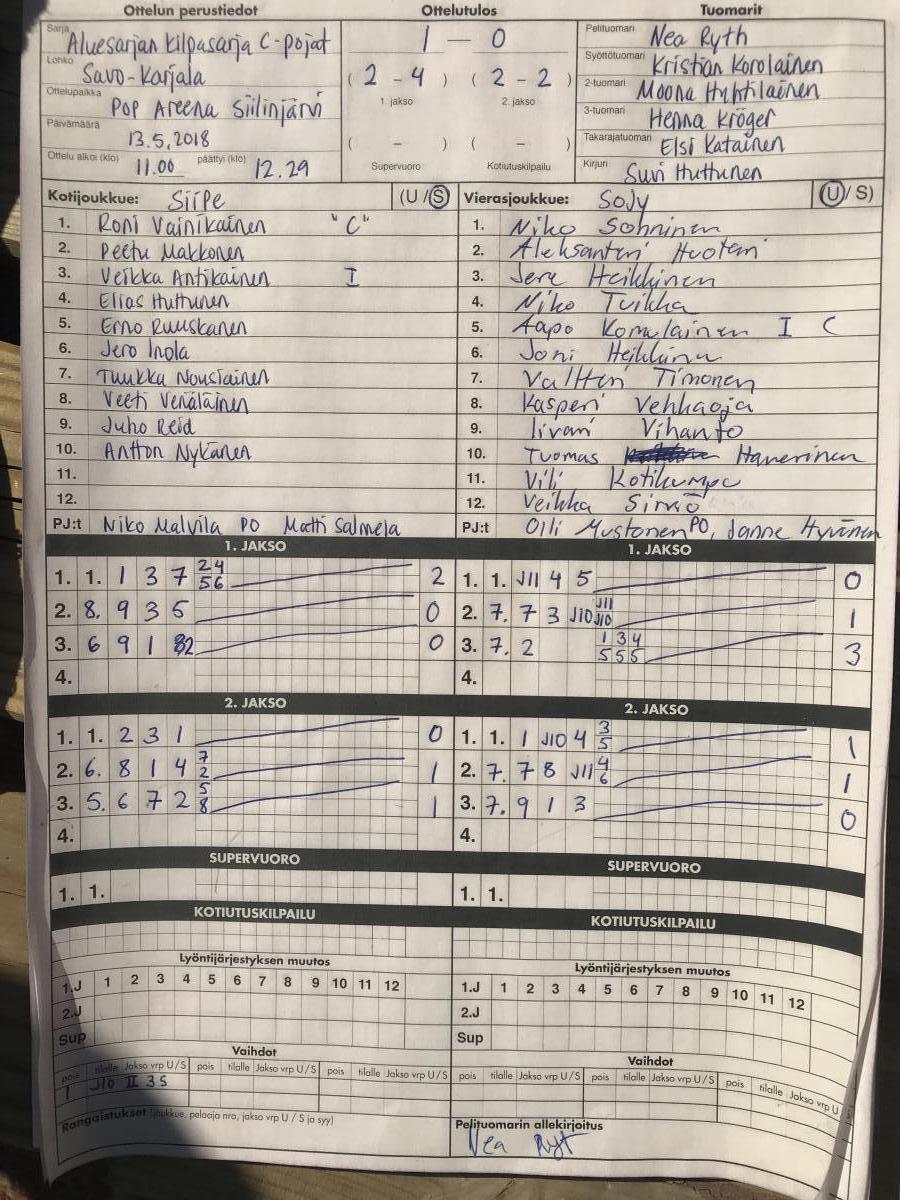 Ottelun perustiedot Ottelutulos Tuomarit
Sarja Aluesarjan kilpasarja C-pojat 1 — 0 Pelituomari Nea Ryth
Lohko Savo-Karjala (2 - 4) (2 - 2) Syöttötuomari Kristian Korolainen
1. jakso 2. jakso 2-tuomari Moona Huhtilainen
Ottelupaikka Pop Areena Siilinjärvi 3-tuomari Henna Kröger
Päivämäärä 13.5.2018 ( - ) ( - ) Takarajatuomari Elsi Katainen
Ottelu alkoi (klo) 11.00 päättyi (klo) 12.29 Supervuoro Kotiutuskilpailu Kirjuri Suvi Huttunen
Kotijoukkue: Siipe (U/S) Vierasjoukkue: SoJy (U/S)
1. Roni Vainikainen "C" 1. Niko Sohninen
2. Peetu Makkonen 2. Aleksanteri Huotari
3. Veikka Antikainen I 3. Jere Heikkinen
4. Elias Huttunen 4. Niko Tuikka
5. Erno Ruuskanen 5. Aapo Komulainen I C
6. Jero Inola 6. Joni Heikkinen
7. Tuukka Nousiainen 7. Valtteri Timonen
8. Veeti Venäläinen 8. Kasperi Vehkaoja
9. Juho Reid 9. Iivari Vihanto
10. Antton Nykänen 10. Tuomas Hanerinen
11. 11. Vili Kotikumpu
12. 12. Veikka Simo
PJ:t Niko Malvila PO Matti Salmela PJ:t Olli Mustonen PO, Janne Hyvönen
1. JAKSO 1. JAKSO
1. 1. 1 3 7 24 56 2 1. 1. J11 4 5 0
2. 8. 9 3 5 0 2. 7. 7 3 J10 J11 J10 1
3. 6 9 1 82 0 3. 7. 2 1 3 4 5 5 5 3
4. 4.
2. JAKSO 2. JAKSO
1. 1. 2 3 1 0 1. 1. 1 J10 4 3 5 1
2. 6. 8 1 4 7 2 1 2. 7. 7 8 J11 4 6 1
3. 5. 6 7 2 5 8 1 3. 7. 9 1 3 0
4. 4.
SUPERVUORO SUPERVUORO
1. 1. 1. 1.
KOTIUTUSKILPAILU KOTIUTUSKILPAILU
Lyöntijärjestyksen muutos Lyöntijärjestyksen muutos
1.J 1 2 3 4 5 6 7 8 9 10 11 12 1.J 1 2 3 4 5 6 7 8 9 10 11 12
2.J 2.J
Sup Sup
Vaihdot Vaihdot
pois tilalle Jakso vrp U/S pois tilalle Jakso vrp U/S pois tilalle Jakso vrp U/S pois tilalle Jakso vrp U/S pois tilalle Jakso vrp U/S pois tilalle Jakso vrp U/S
1 J10 II 3S
Rangaistukset (joukkue, pelaaja nro, jakso vrp U / S ja syy) Pelituomarin allekirjoitus
Nea Ryt